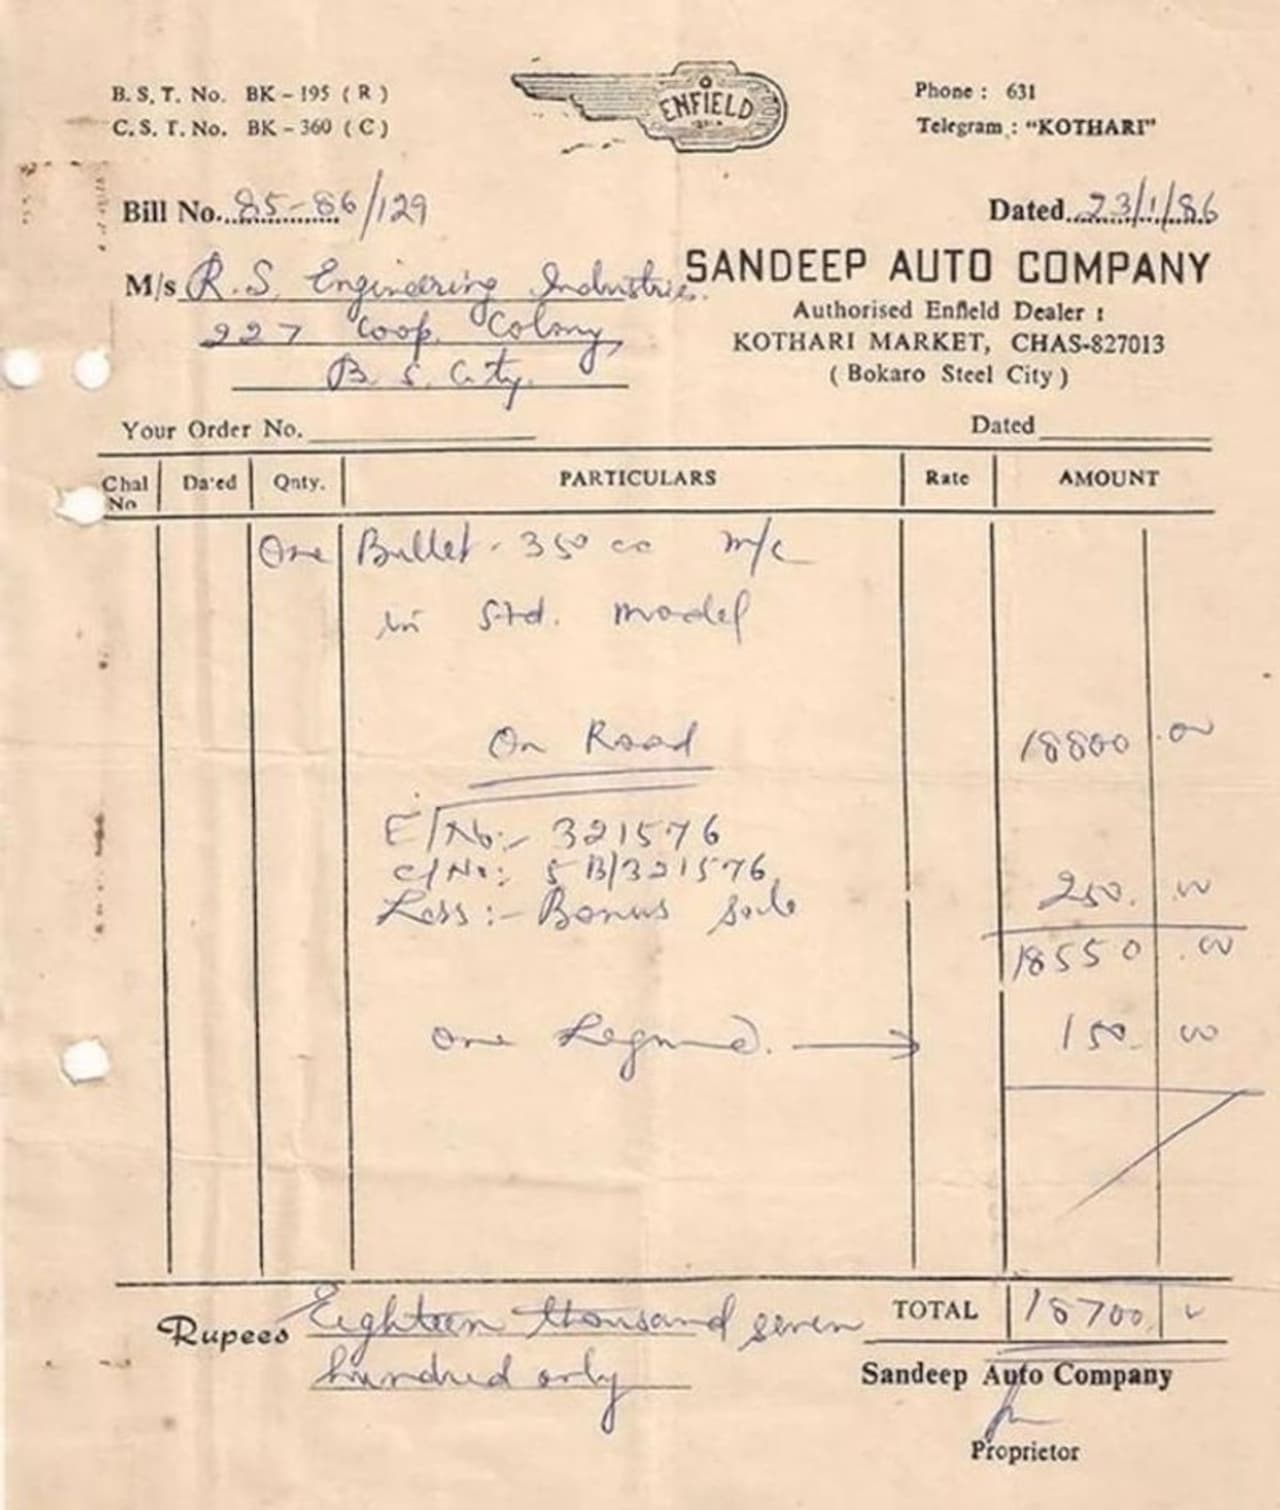 B.S.T. No. BK - 195 ( R )
C.S.T. No. BK - 360 ( C )
ENFIELD
Phone : 631
Telegram : "KOTHARI"
Bill No. 85-86/129
Dated 23/1/86
M/s R.S. Engineering Industries.
227 Coop. Colony,
B. S. City.
SANDEEP AUTO COMPANY
Authorised Enfield Dealer :
KOTHARI MARKET, CHAS-827013
( Bokaro Steel City )
Your Order No.
Dated
Chal No Dated Qnty. PARTICULARS Rate AMOUNT
One Bullet - 350 cc m/c
in Std. model
On Road 18800 .00
E/No:- 321576
C/No:- 5B/321576
Less :- Bonus sale 250. 00
18550 .00
One → 150. 00
Rupees Eighteen thousand seven TOTAL 18700
hundred only
Sandeep Auto Company
Proprietor